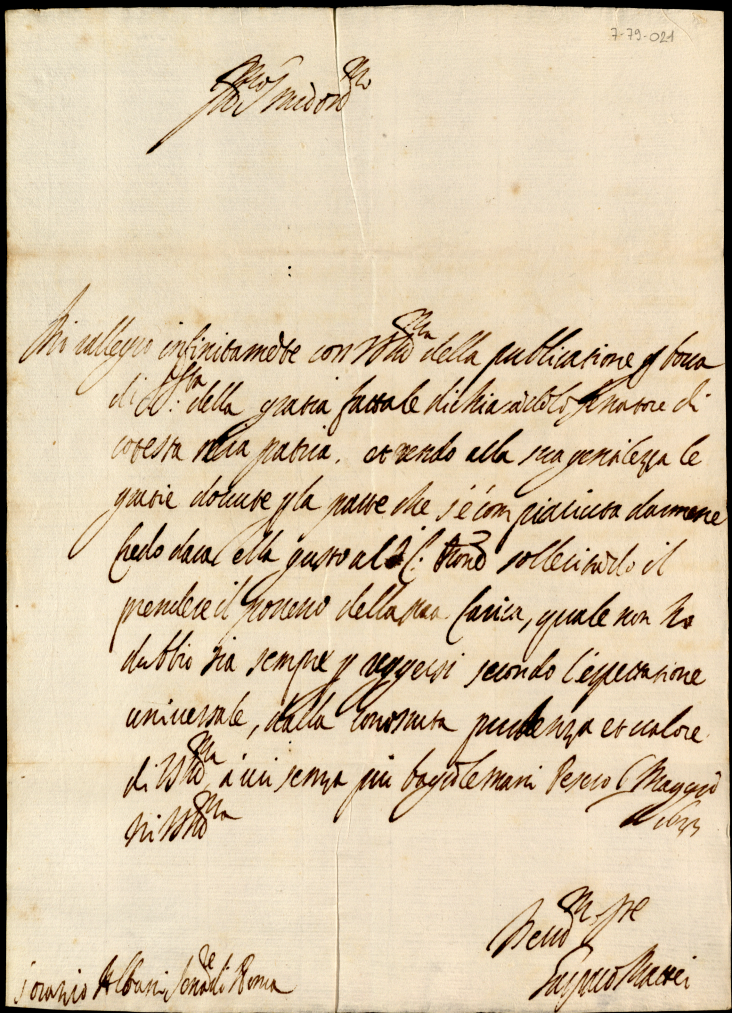 7-79-021
Ill.mo Sig.r mio oss.mo
Mi rallegro infinitamete con VSIll.ma della publicatione p bocca
di S. S.ta della gratia fattale dichiaradolo senatore di
cotesta sua patria. et rendo alla sua gentilezza le
gratie dovute p la parte che s'è compiaciuta darmene
Credo darà ella gusto al sollecitado il
prendere il possesso della sua Carica, quale non ho
dubbio sia sempre p reggersi secondo l'espettatione
universale, dalla conosciuta prudenza et valore
di VSIll.ma à cui senza più bacio le mani Pesero Maggio
Di VSIll.ma 1633
Ser.re
S. Oratio Albani Senat.re di Roma Mattei